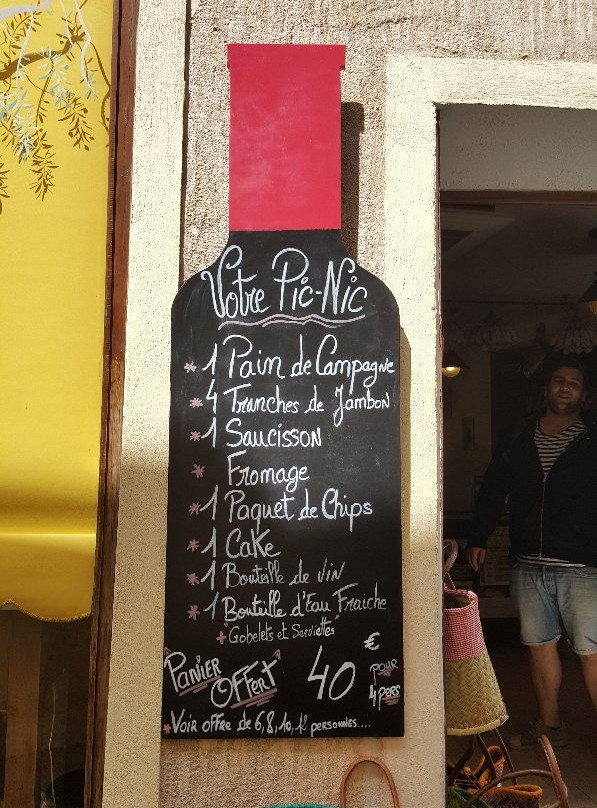 Votre Pic-Nic
* 1 Pain de Campagne
* 4 Tranches de Jambon
* 1 Saucisson
* Fromage
* 1 Paquet de Chips
* 1 Cake
* 1 Bouteille de Vin
* 1 Bouteille d'Eau Fraiche
+ "Gobelets et Serviettes"
"Panier Offert" 40 € pour 4 pers
* Voir offre de 6, 8, 10, 12 personnes....